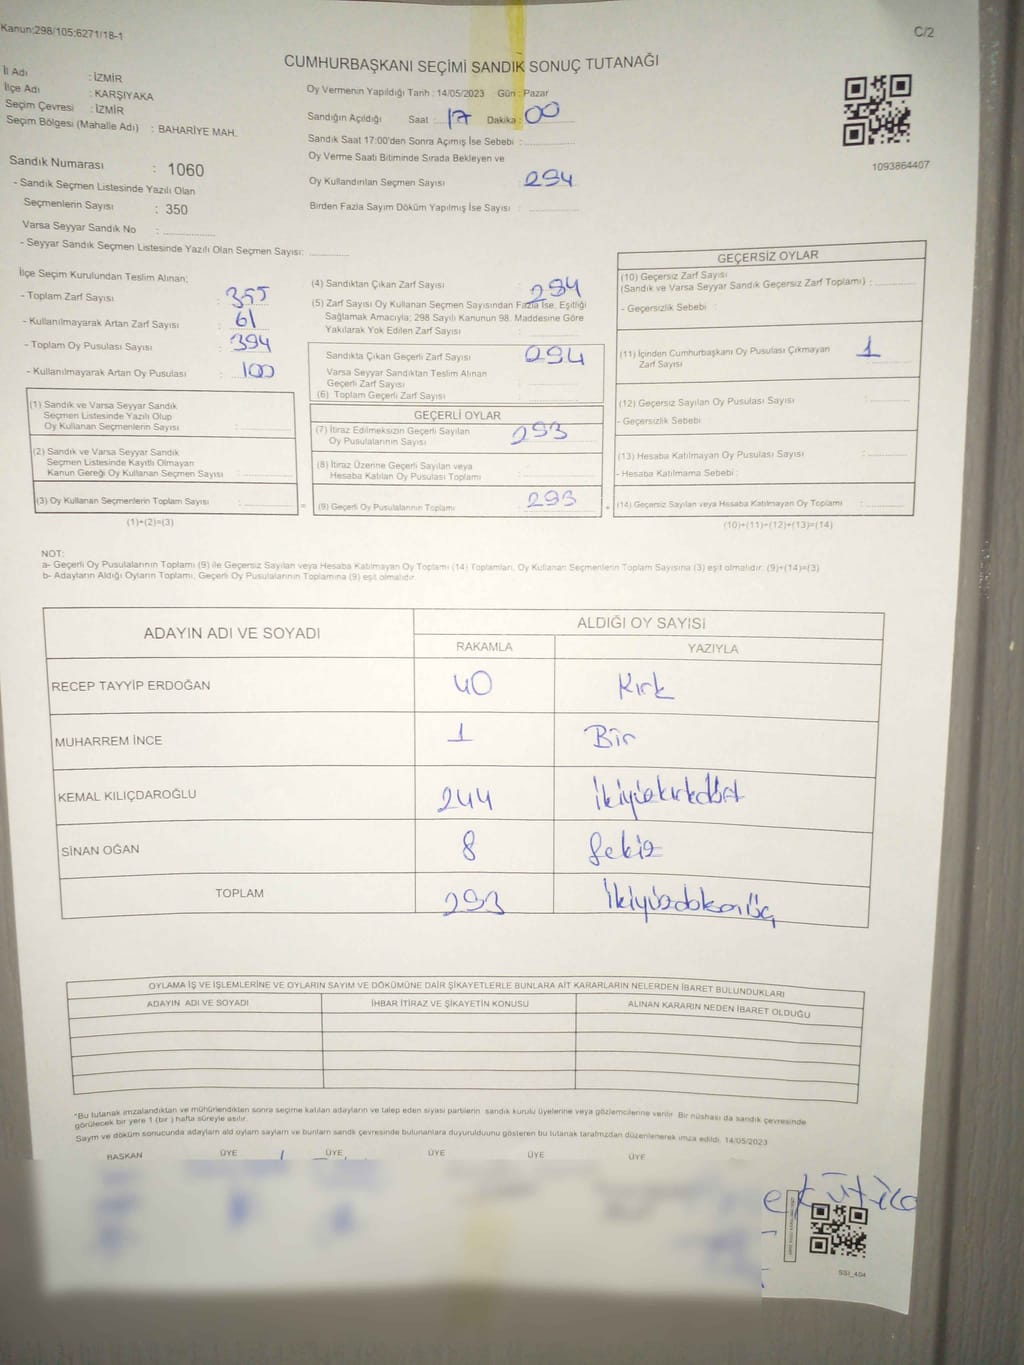 Kanun:298/105;6271/18-1
C/2
CUMHURBAŞKANI SEÇİMİ SANDIK SONUÇ TUTANAĞI
İl Adı : İZMİR
İlçe Adı : KARŞIYAKA
Seçim Çevresi : İZMİR
Seçim Bölgesi (Mahalle Adı) : BAHARİYE MAH.
Sandık Numarası : 1060
- Sandık Seçmen Listesinde Yazılı Olan
Seçmenlerin Sayısı : 350
Varsa Seyyar Sandık No :
- Seyyar Sandık Seçmen Listesinde Yazılı Olan Seçmen Sayısı:
Oy Vermenin Yapıldığı Tarih : 14/05/2023 Gün : Pazar
Sandığın Açıldığı Saat : 17 Dakika : 00
Sandık Saat 17:00'den Sonra Açımış İse Sebebi :
Oy Verme Saati Bitiminde Sırada Bekleyen ve
Oy Kullandırılan Seçmen Sayısı : 294
Birden Fazla Sayım Döküm Yapılmış İse Sayısı :
1093864407
İlçe Seçim Kurulundan Teslim Alınan;
- Toplam Zarf Sayısı : 355
- Kullanılmayarak Artan Zarf Sayısı : 61
- Toplam Oy Pusulası Sayısı : 394
- Kullanılmayarak Artan Oy Pusulası : 100
(1) Sandık ve Varsa Seyyar Sandık
Seçmen Listesinde Yazılı Olup
Oy Kullanan Seçmenlerin Sayısı :
(2) Sandık ve Varsa Seyyar Sandık
Seçmen Listesinde Kayıtlı Olmayan
Kanun Gereği Oy Kullanan Seçmen Sayısı :
(3) Oy Kullanan Seçmenlerin Toplam Sayısı :
(1)+(2)=(3)
(4) Sandıktan Çıkan Zarf Sayısı : 294
(5) Zarf Sayısı Oy Kullanan Seçmen Sayısından Fazla İse, Eşitliği
Sağlamak Amacıyla; 298 Sayılı Kanunun 98. Maddesine Göre
Yakılarak Yok Edilen Zarf Sayısı :
Sandıkta Çıkan Geçerli Zarf Sayısı : 294
Varsa Seyyar Sandıktan Teslim Alınan
Geçerli Zarf Sayısı :
(6) Toplam Geçerli Zarf Sayısı :
GEÇERLİ OYLAR
(7) İtiraz Edilmeksizin Geçerli Sayılan
Oy Pusulalarının Sayısı : 293
(8) İtiraz Üzerine Geçerli Sayılan veya
Hesaba Katılan Oy Pusulası Toplamı :
(9) Geçerli Oy Pusulalarının Toplamı : 293
GEÇERSİZ OYLAR
(10) Geçersiz Zarf Sayısı
(Sandık ve Varsa Seyyar Sandık Geçersiz Zarf Toplamı) :
- Geçersizlik Sebebi :
(11) İçinden Cumhurbaşkanı Oy Pusulası Çıkmayan
Zarf Sayısı : 1
(12) Geçersiz Sayılan Oy Pusulası Sayısı :
- Geçersizlik Sebebi :
(13) Hesaba Katılmayan Oy Pusulası Sayısı :
- Hesaba Katılmama Sebebi :
(14) Geçersiz Sayılan veya Hesaba Katılmayan Oy Toplamı :
(10)+(11)+(12)+(13)=(14)
NOT:
a- Geçerli Oy Pusulalarının Toplamı (9) ile Geçersiz Sayılan veya Hesaba Katılmayan Oy Toplamı (14) Toplamları, Oy Kullanan Seçmenlerin Toplam Sayısına (3) eşit olmalıdır. (9)+(14)=(3)
b- Adayların Aldığı Oyların Toplamı, Geçerli Oy Pusulalarının Toplamına (9) eşit olmalıdır.
ADAYIN ADI VE SOYADI ALDIĞI OY SAYISI
RAKAMLA YAZIYLA
RECEP TAYYİP ERDOĞAN 40 Kırk
MUHARREM İNCE 1 Bir
KEMAL KILIÇDAROĞLU 244 İkiyüzkırkdört
SİNAN OĞAN 8 Sekiz
TOPLAM 293 İkiyüzdoksanüç
OYLAMA İŞ VE İŞLEMLERİNE VE OYLARIN SAYIM VE DÖKÜMÜNE DAİR ŞİKAYETLERLE BUNLARA AİT KARARLARIN NELERDEN İBARET BULUNDUKLARI
ADAYIN ADI VE SOYADI İHBAR İTİRAZ VE ŞİKAYETİN KONUSU ALINAN KARARIN NEDEN İBARET OLDUĞU
*Bu tutanak imzalandıktan ve mühürlendikten sonra seçime katılan adayların ve talep eden siyasi partilerin sandık kurulu üyelerine veya gözlemcilerine verilir. Bir nüshası da sandık çevresinde
görülecek bir yere 1 (bir) hafta süreyle asılır.
Sayım ve döküm sonucunda adayların ald oyların sayıları ve bunların sandık çevresinde bulunanlara duyurulduunu gösteren bu tutanak tarafımzdan düzenlenerek imza edildi. 14/05/2023
BAŞKAN ÜYE ÜYE ÜYE ÜYE ÜYE
SSI_404